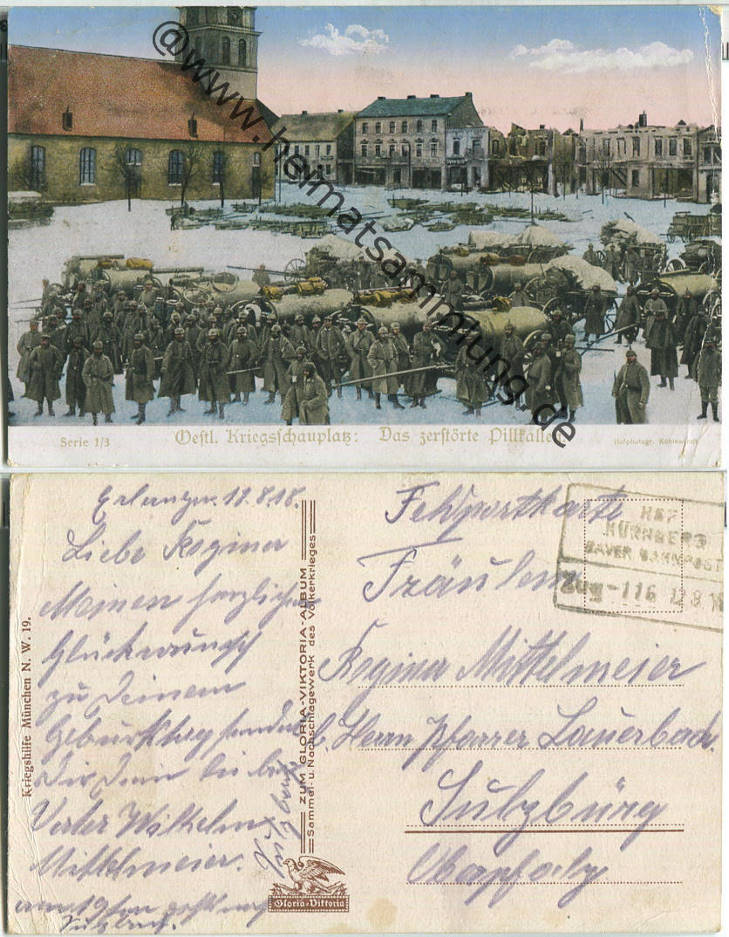 @www.heimatsammlung.de
Serie 1/3
Oestl. Kriegsschauplatz: Das zerstörte Pillkallen.
Hofphotogr. Kühlewindt
Kriegshilfe München N. W. 19.
Erlangen. 11.8.18.
Liebe Regina
Meinen herzlichen
Glückwunsch
zu Deinem
Geburtstag sendet
Dir Dein lieber
Vetter Wilhelm
Mittelmeier.
ZUM GLORIA-VIKTORIA-ALBUM
Sammel- u. Nachschlagewerk des Völkerkrieges
Gloria-Viktoria
Feldpostkarte
NÜRNBERG
BAYER BAHNPOST
Zug 116 12 8 18
Fräulein
Regina Mittelmeier
b. Herrn Pfarrer Lauerbach.
Sulzbürg
Oberpfalz